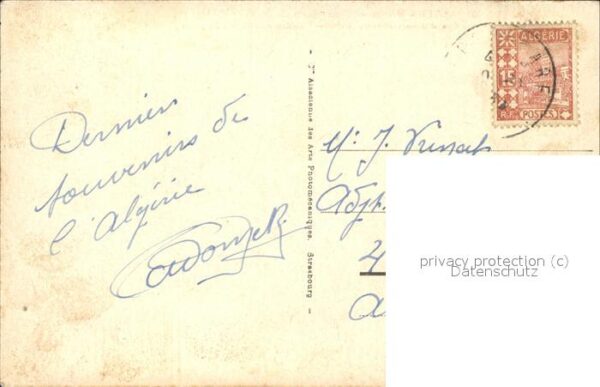 Derniers
souvenirs de
l'Algérie
Alsacienne des Arts Photomécaniques, Strasbourg
ALGÉRIE
15
R.F. POSTES
J.
Adj
4
A
privacy protection (c)
Datenschutz